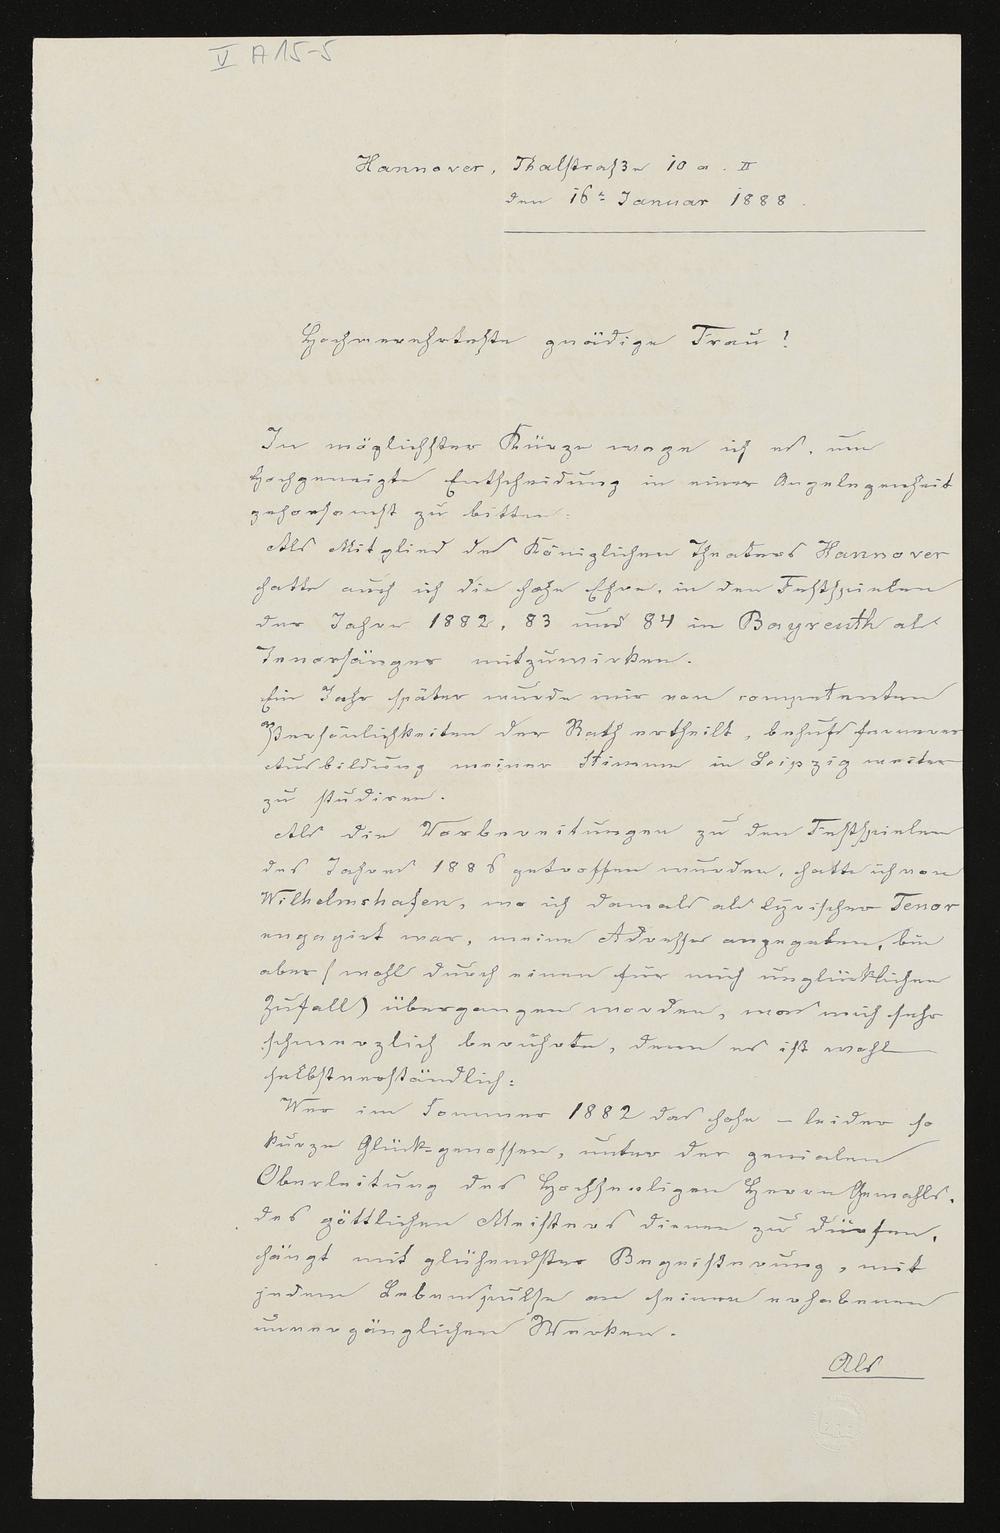 V A 15-5
Hannover, Thalstraße 10 a. II
den 16t Januar 1888.
Hochverehrteste gnädige Frau!
In möglichster Kürze wage ich es, um
hochgeneigte Entscheidung in einer Angelegenheit
gehorsamst zu bitten:
Als Mitglied des Königlichen Theaters Hannover
hatte auch ich die hohe Ehre, in den Festspielen
der Jahre 1882, 83 und 84 in Bayreuth als
Tenorsänger mitzuwirken.
Ein Jahr später wurde mir von competenten
Persönlichkeiten der Rath ertheilt, behufs fernerer
Ausbildung meiner Stimme in Leipzig weiter
zu studiren.
Als die Vorbereitungen zu den Festspielen
des Jahres 1886 getroffen wurden, hatte ich von
Wilhelmshafen, wo ich damals als lyrischer Tenor
engagirt war, meine Adresse angegeben, bin
aber (wohl durch einen für mich unglücklichen
Zufall) übergangen worden, was mich sehr
schmerzlich berührte, denn es ist wohl
selbstverständlich:
Wer im Sommer 1882 das hohe – leider so
kurze Glück genossen, unter der genialen
Oberleitung des Hochseeligen Herrn Gemahls,
des göttlichen Meisters dienen zu dürfen,
hängt mit glühendster Begeisterung, mit
jedem Lebenspulse an seinen erhabenen
unvergänglichen Werken.
Als